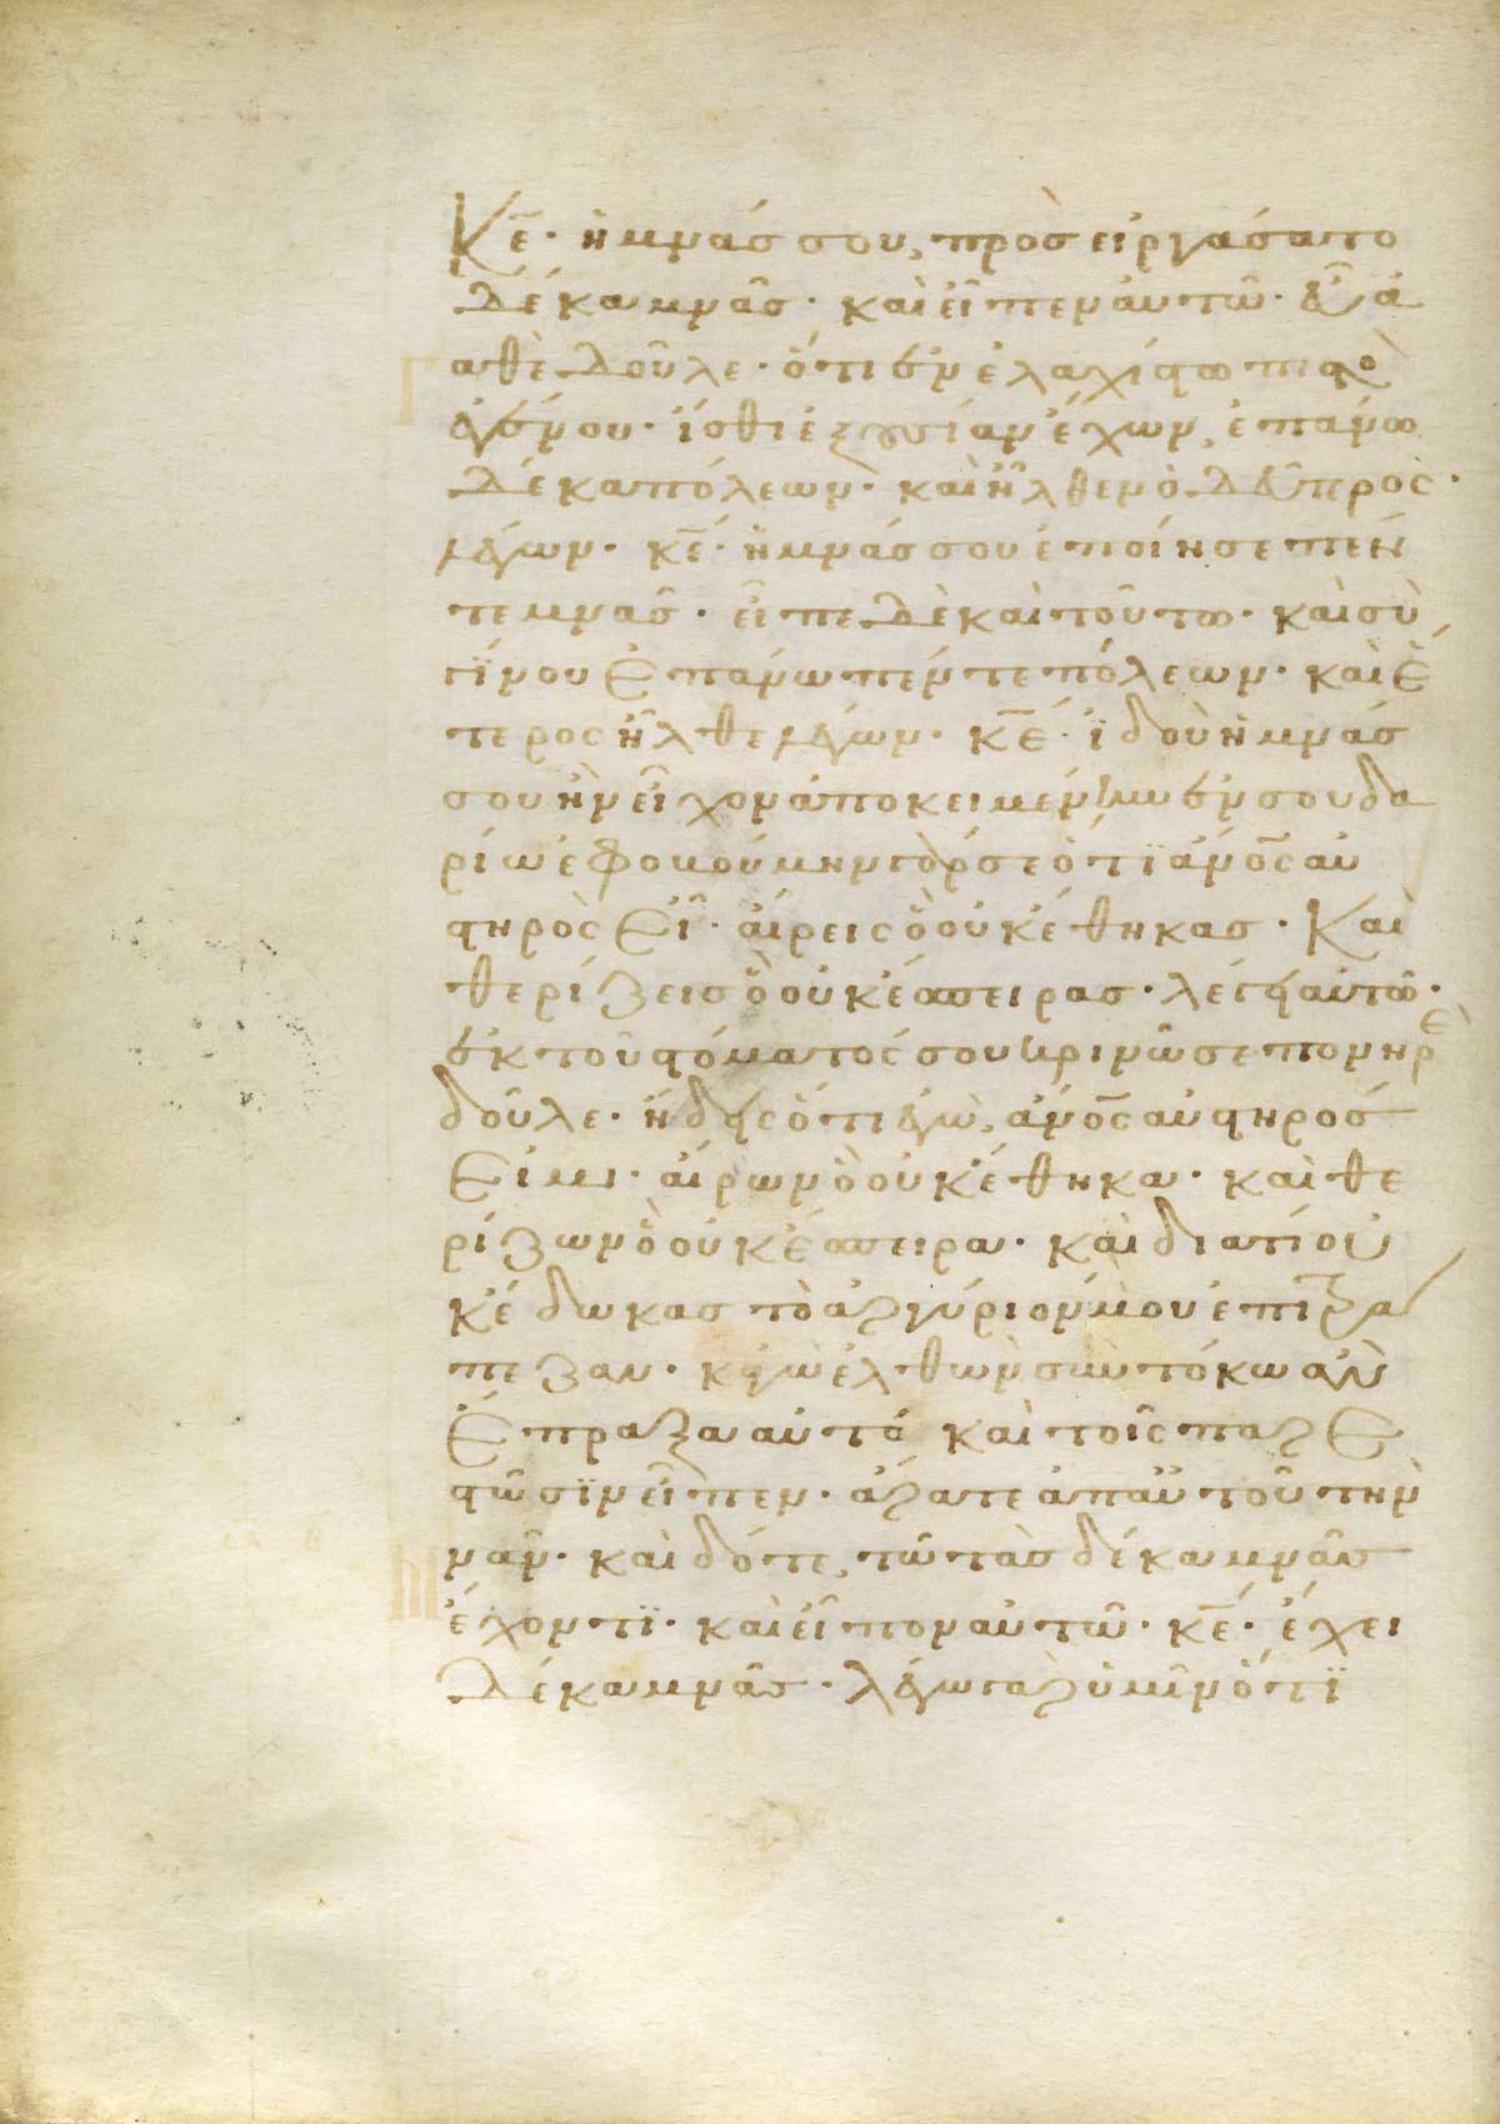 Κε̄· ἡ μνᾶ σου, προσειργάσατο
δέκα μνᾶς· καὶ εἶπεν αὐτῶ· εὖ ἀ
αθὲ δοῦλε· ὅτι ἐν ἐλαχίστω πιστὸ
ἐγένου· ἴσθι ἐξουσίαν ἔχων, ἐπάνω
δέκα πόλεων· καὶ ἦλθεν ὁ δεύτερος·
λέγων· κε̄· ἡ μνᾶ σου ἐποίησε πέν
τε μνᾶς· εἶπε δὲ καὶ τούτω· καὶ σὺ
γίνου ἐπάνω πέντε πόλεων· καὶ ἕ
τερος ἦλθε λέγων· κε̄· ἰδοὺ ἡ μνᾶ
σου ἣν εἶχον ἀποκειμένην ἐν σουδα
ρίω ἐφοβούμην γάρ σε ὅτι ἄνο̄ς αὐ
στηρὸς εἶ· αἴρεις ὃ οὐκ ἔθηκας· Καὶ
θερίζεις ὃ οὐκ ἔσπειρας· λέγει αὐτῶ·
ἐκ τοῦ στόματός σου κρινῶ σε πονηρὲ
δοῦλε· ἤδεις ὅτι ἐγὼ, ἄνο̄ς αὐστηρός
εἰμι· αἴρων ὃ οὐκ ἔθηκα· καὶ θε
ρίζων ὃ οὐκ ἔσπειρα· καὶ διατί οὐ
κ ἔδωκας τὸ ἀργύριόν μου ἐπὶ τρά
πεζαν· κἀγὼ ἐλθὼν σὺν τόκω ἂν
ἔπραξα αὐτό καὶ τοῖς παρε
στῶσιν εἶπεν· ἄρατε ἀπ αὐτοῦ τὴν
μνᾶν· καὶ δότε, τῶ τὰς δέκα μνᾶς
ἔχοντι· καὶ εἶπον αὐτῶ· κε̄· ἔχει
δέκα μνᾶς· λέγω γὰρ ὑμῖν ὅτι